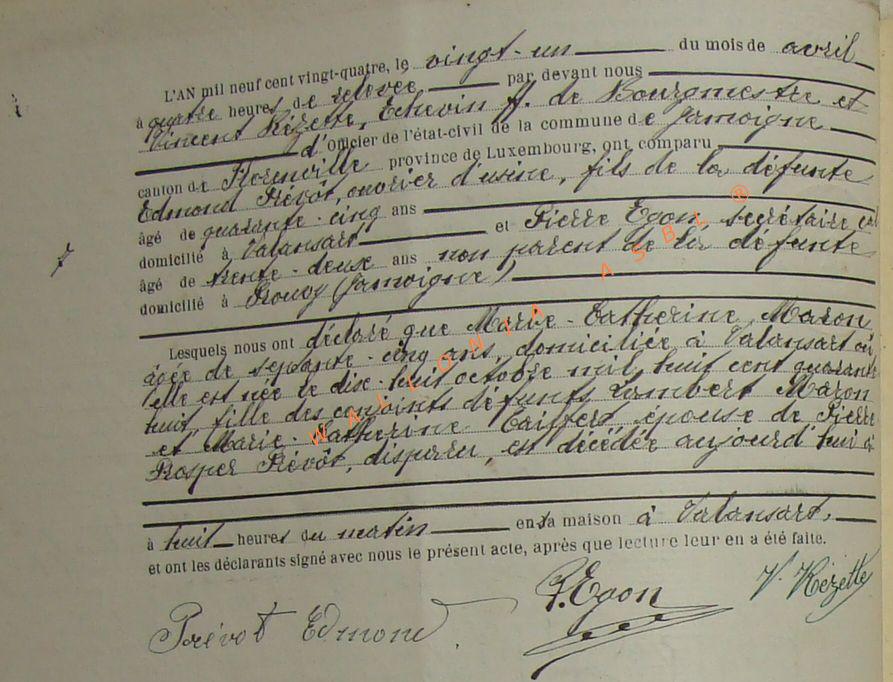 L'AN mil neuf cent vingt-quatre, le vingt-un du mois de avril
à quatre heures de relevée par devant nous
Vincent Rézette, Echevin ff. de Bourgmestre et
d'Officier de l'état-civil de la commune de Jamoigne
canton de Florenville province de Luxembourg, ont comparu
Edmond Prévôt, ouvrier d'usine, fils de la défunte
âgé de quarante-cinq ans
domicilié à Valansart et Pierre Egon, secrétaire cal
âgé de trente-deux ans non parent de la défunte
domicilié à Prouvy (Jamoigne)
Lesquels nous ont déclaré que Marie-Catherine Maron
âgée de septante-cinq ans, domiciliée à Valansart où
elle est née le dix-huit octobre mil huit cent quarante
huit, fille des conjoints défunts Lambert Maron
et Marie-Catherine épouse de Pierre
Prosper Prévôt, disparu, est décédée aujourd'hui à
à huit heures du matin en sa maison à Valansart.
et ont les déclarants signé avec nous le présent acte, après que lecture leur en a été faite.
Prévot Edmond P. Egon V. Rézette
WALLONIA ASBL ®